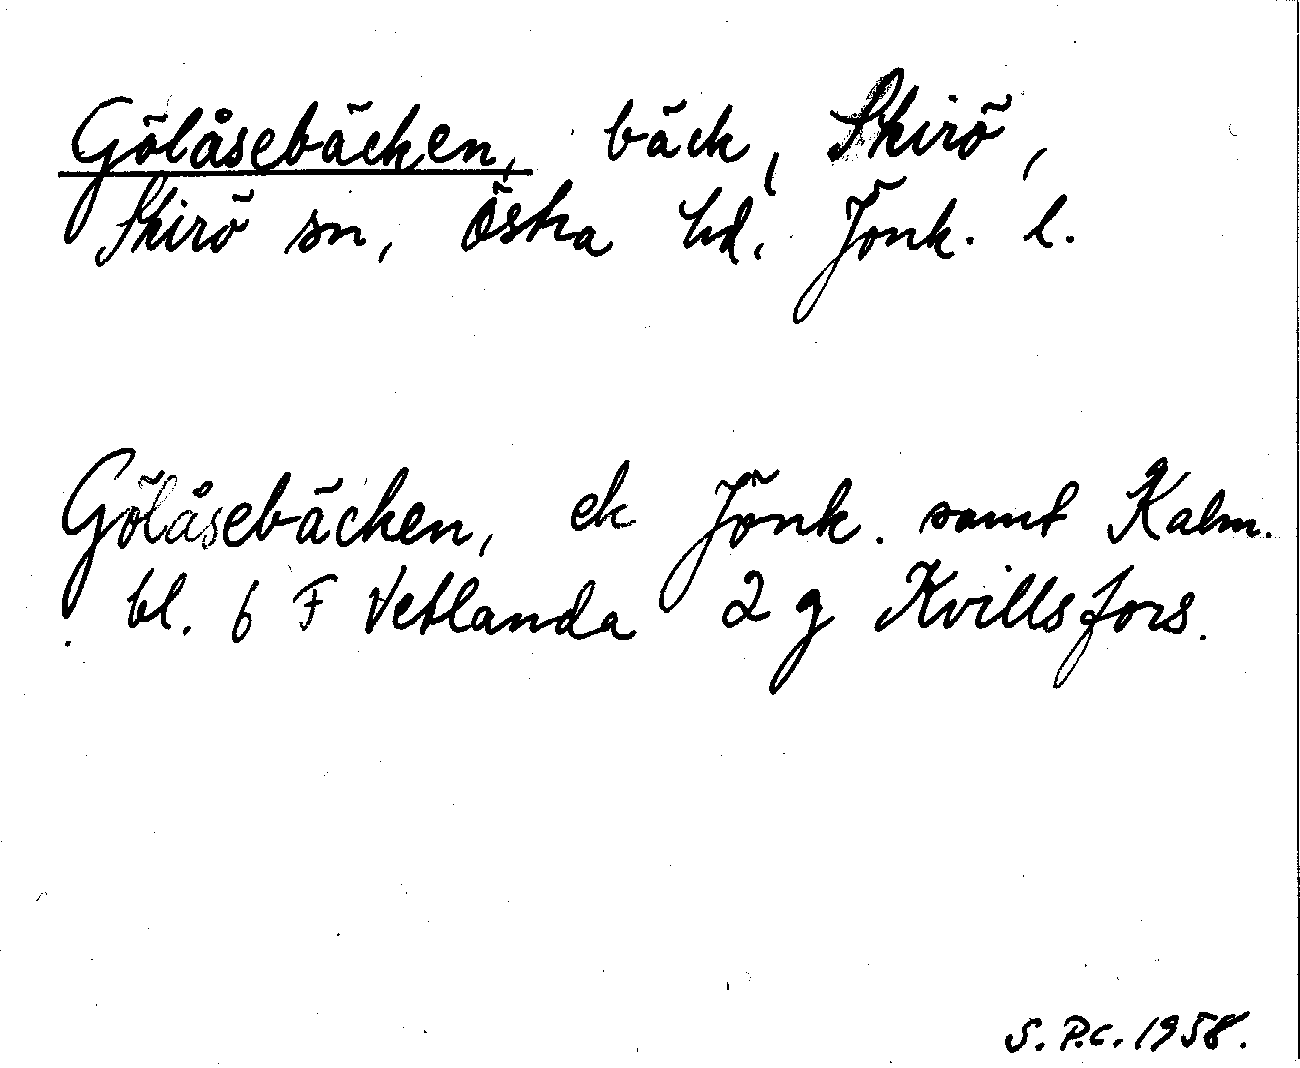 Gölåsebäcken, bäck, Skirö,
Skirö sn, Östra hd. Jönk. l.
Gölåsebäcken, ek Jönk. samt Kalm.
bl. 6 F Vetlanda 2 g Kvillsfors.
S. P.C. 1958.